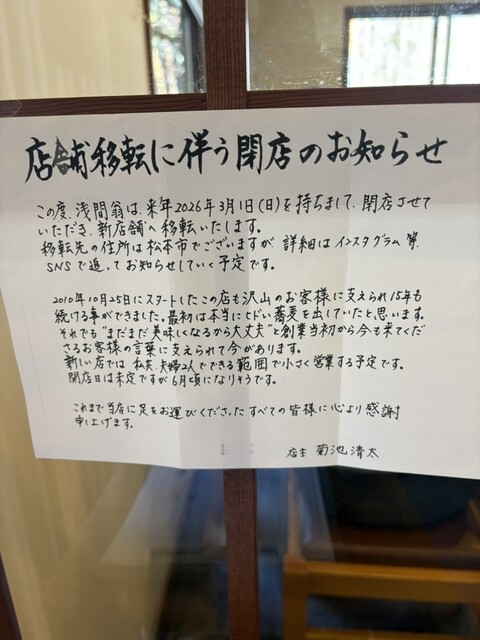 店舗移転に伴う閉店のお知らせ
この度、浅間翁は、来年2026年3月1日(日)を持ちまして、閉店させて
いただき、新店舗へ移転いたします。
移転先の住所は松本市でございますが、詳細はインスタグラム等、
SNSで追ってお知らせしていく予定です。
2010年10月25日にスタートしたこの店も沢山のお客様に支えられ15年も
続ける事ができました。最初は本当にヒドい蕎麦を出していたと思います。
それでも"まだまだ美味しくなるから大丈夫"と創業当初から今も来てくだ
さるお客様の言葉に支えられて今があります。
新しい店では 私共、夫婦2人でできる範囲で小さく営業する予定です。
開店日は未定ですが6月頃になりそうです。
これまで当店に足をお運びくださったすべての皆様に心より感謝
申し上げます。
店主 菊池清太